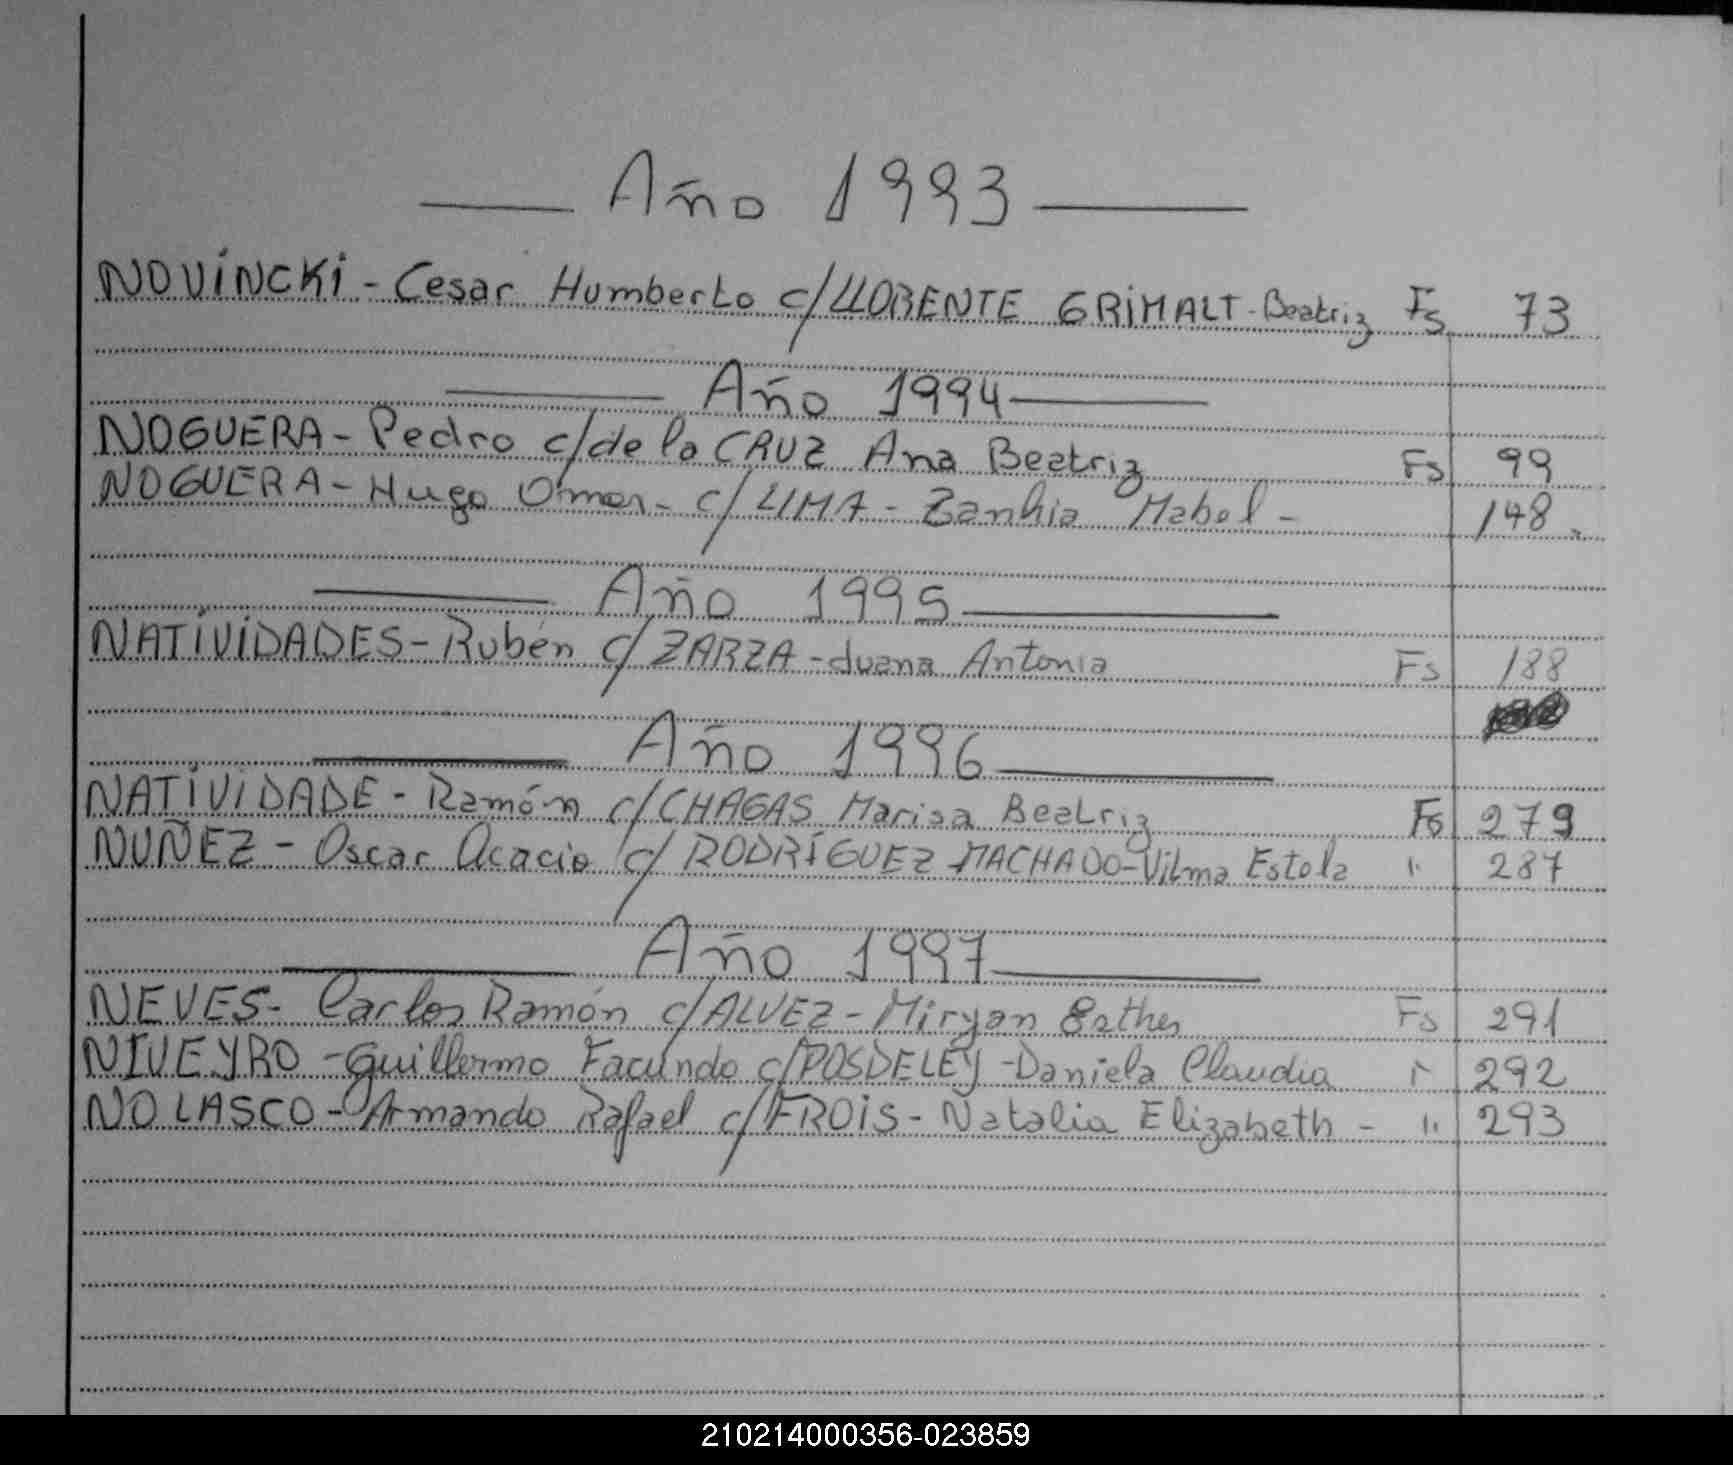 Año 1993
NOVINCKI - Cesar Humberto c/ LLORENTE GRIMALT - Beatriz Fs 73
Año 1994
NOGUERA - Pedro c/ de la CRUZ Ana Beatriz Fs 99
NOGUERA - Hugo Omar - c/ LIMA - Zanhia Mabel - 148
Año 1995
NATIVIDADES - Rubén c/ ZARZA - Juana Antonia Fs 188
Año 1996
NATIVIDADE - Ramón c/ CHAGAS Marisa Beatriz Fs 279
NUÑEZ - Oscar Acacio c/ RODRÍGUEZ MACHADO - Vilma Estela " 287
Año 1997
NEVES - Carlos Ramón c/ ALVEZ - Miryan Esther Fs 291
NIVEYRO - Guillermo Facundo c/ POSDELEY - Daniela Claudia " 292
NOLASCO - Armando Rafael c/ FROIS - Natalia Elizabeth - " 293
210214000356-023859